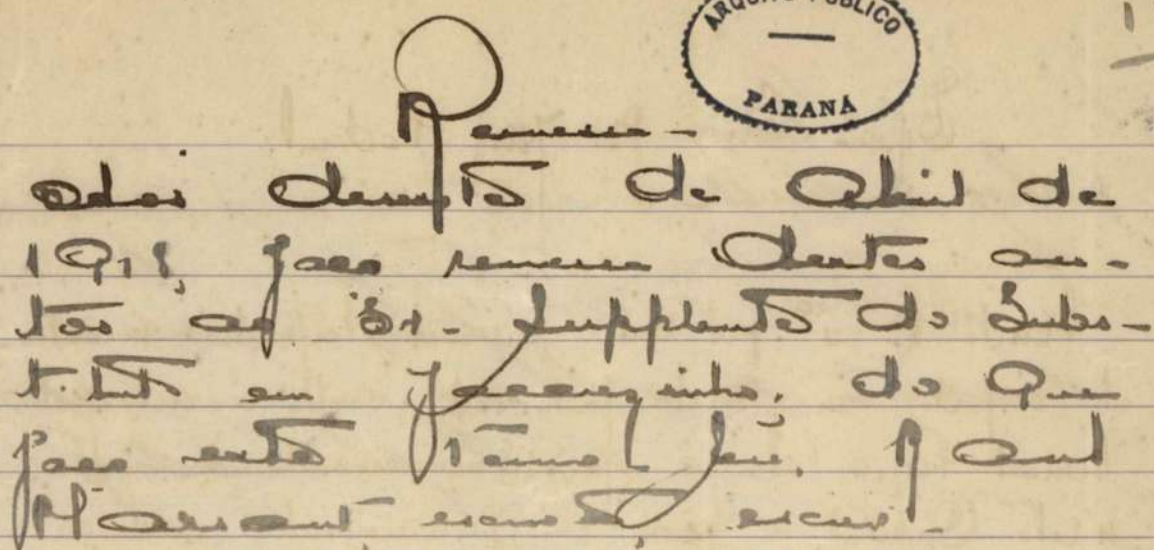 ARQUIVO PUBLICO
PARANÁ
Remessa
Aos de Abril de
191 faço remessa destes au-
tos ao Sr. Supplente do Subs-
tituto em Jacarezinho, do que
faço este termo. Eu, Raul
escrivão, escrevi.